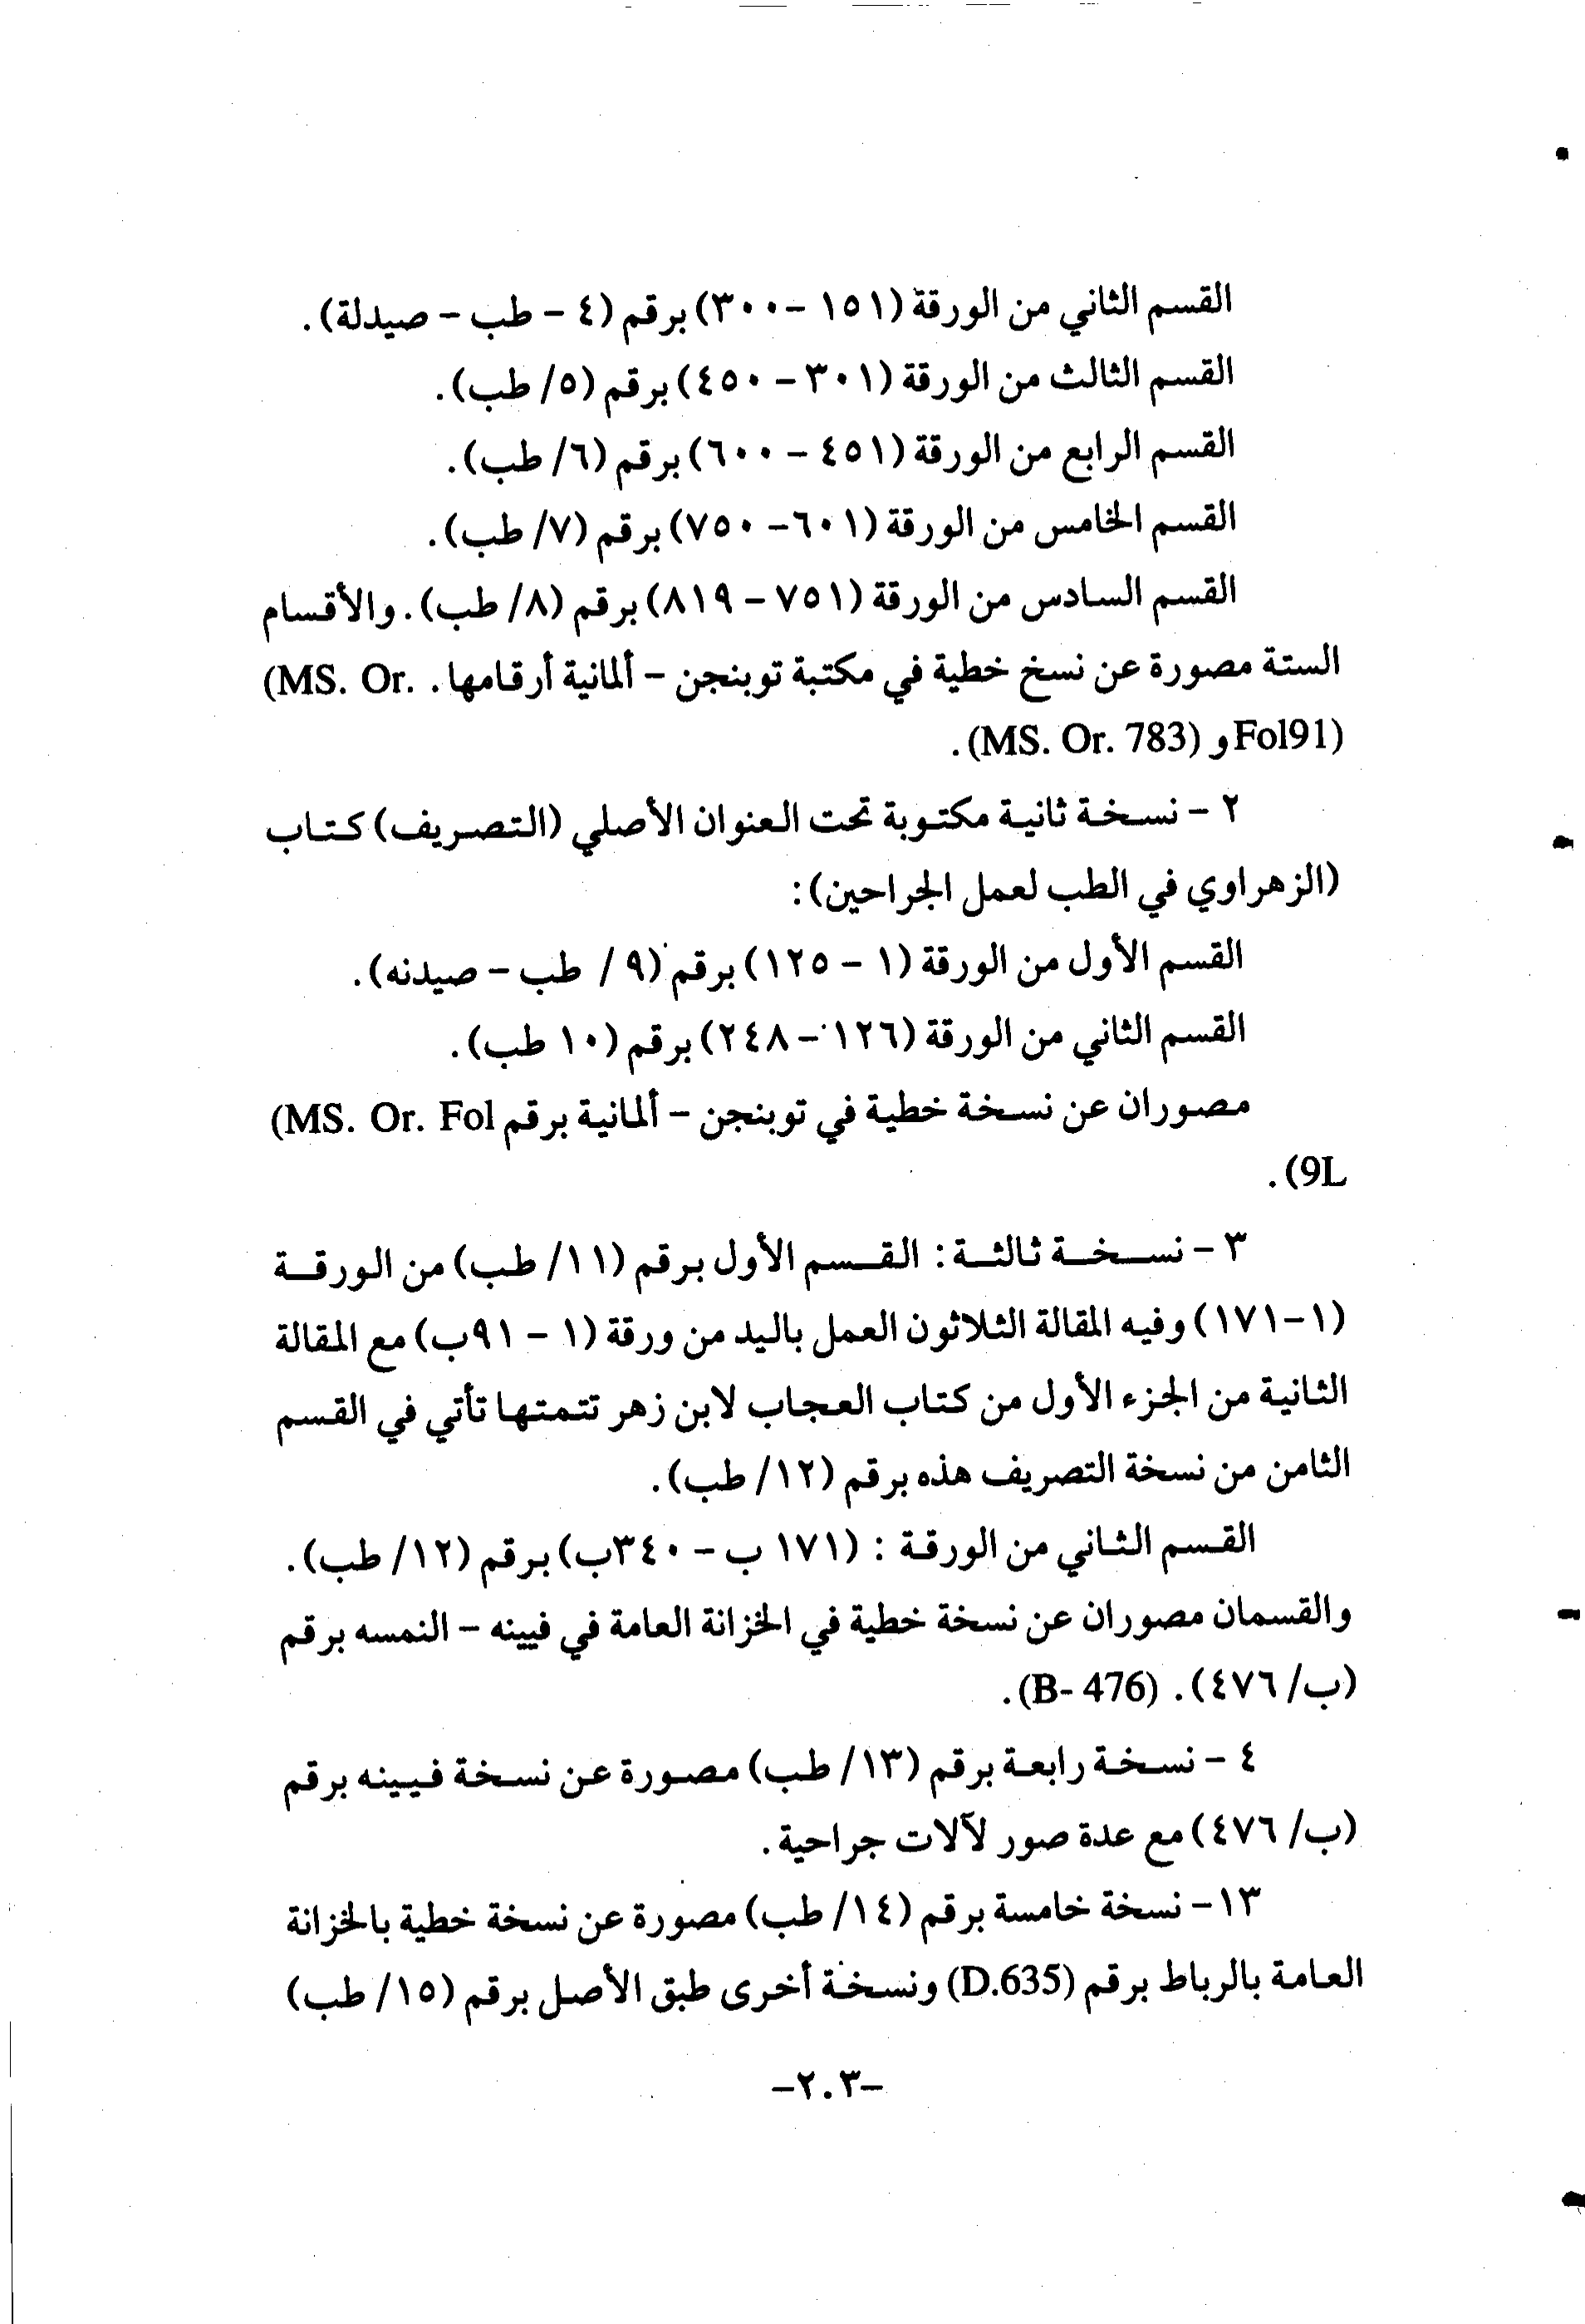 القسم الثاني من الورقة (١٥١ - ٣٠٠) برقم (٤ - طب - صيدلة).
القسم الثالث من الورقة (٣٠١ - ٤٥٠) برقم (٥/ طب).
القسم الرابع من الورقة (٤٥١ - ٦٠٠) برقم (٦/ طب).
القسم الخامس من الورقة (٦٠١ - ٧٥٠) برقم (٧/ طب).
القسم السادس من الورقة (٧٥١ - ٨١٩) برقم (٨/ طب). والأقسام
الستة مصورة عن نسخ خطية في مكتبة توبنجن - ألمانية أرقامها. (MS. Or.
Fol91) و (MS. Or. 783).
٢ - نسخة ثانية مكتوبة تحت العنوان الأصلي (التصريف) كتاب
(الزهراوي في الطب لعمل الجراحين):
القسم الأول من الورقة (١ - ١٢٥) برقم (٩ / طب - صيدنه).
القسم الثاني من الورقة (١٢٦ - ٢٤٨) برقم (١٠ طب).
مصوران عن نسخة خطية في توبنجن - ألمانية برقم (MS. Or. Fol
9L).
٣ - نسخة ثالثة: القسم الأول برقم (١١/ طب) من الورقة
(١-١٧١) وفيه المقالة الثلاثون العمل باليد من ورقة (١ - ٩١ب) مع المقالة
الثانية من الجزء الأول من كتاب العجاب لابن زهر تتمتها تأتي في القسم
الثامن من نسخة التصريف هذه برقم (١٢/ طب).
القسم الثاني من الورقة : (١٧١ ب - ٣٤٠ب) برقم (١٢/ طب).
والقسمان مصوران عن نسخة خطية في الخزانة العامة في فيينه - النمسه برقم
(ب/ ٤٧٦). (B- 476).
٤ - نسخة رابعة برقم (١٣/ طب) مصورة عن نسخة فيينه برقم
(ب/ ٤٧٦) مع عدة صور لآلات جراحية.
١٣- نسخة خامسة برقم (١٤/ طب) مصورة عن نسخة خطية بالخزانة
العامة بالرباط برقم (D.635) ونسخة أخرى طبق الأصل برقم (١٥/ طب)
-٢٠٣-